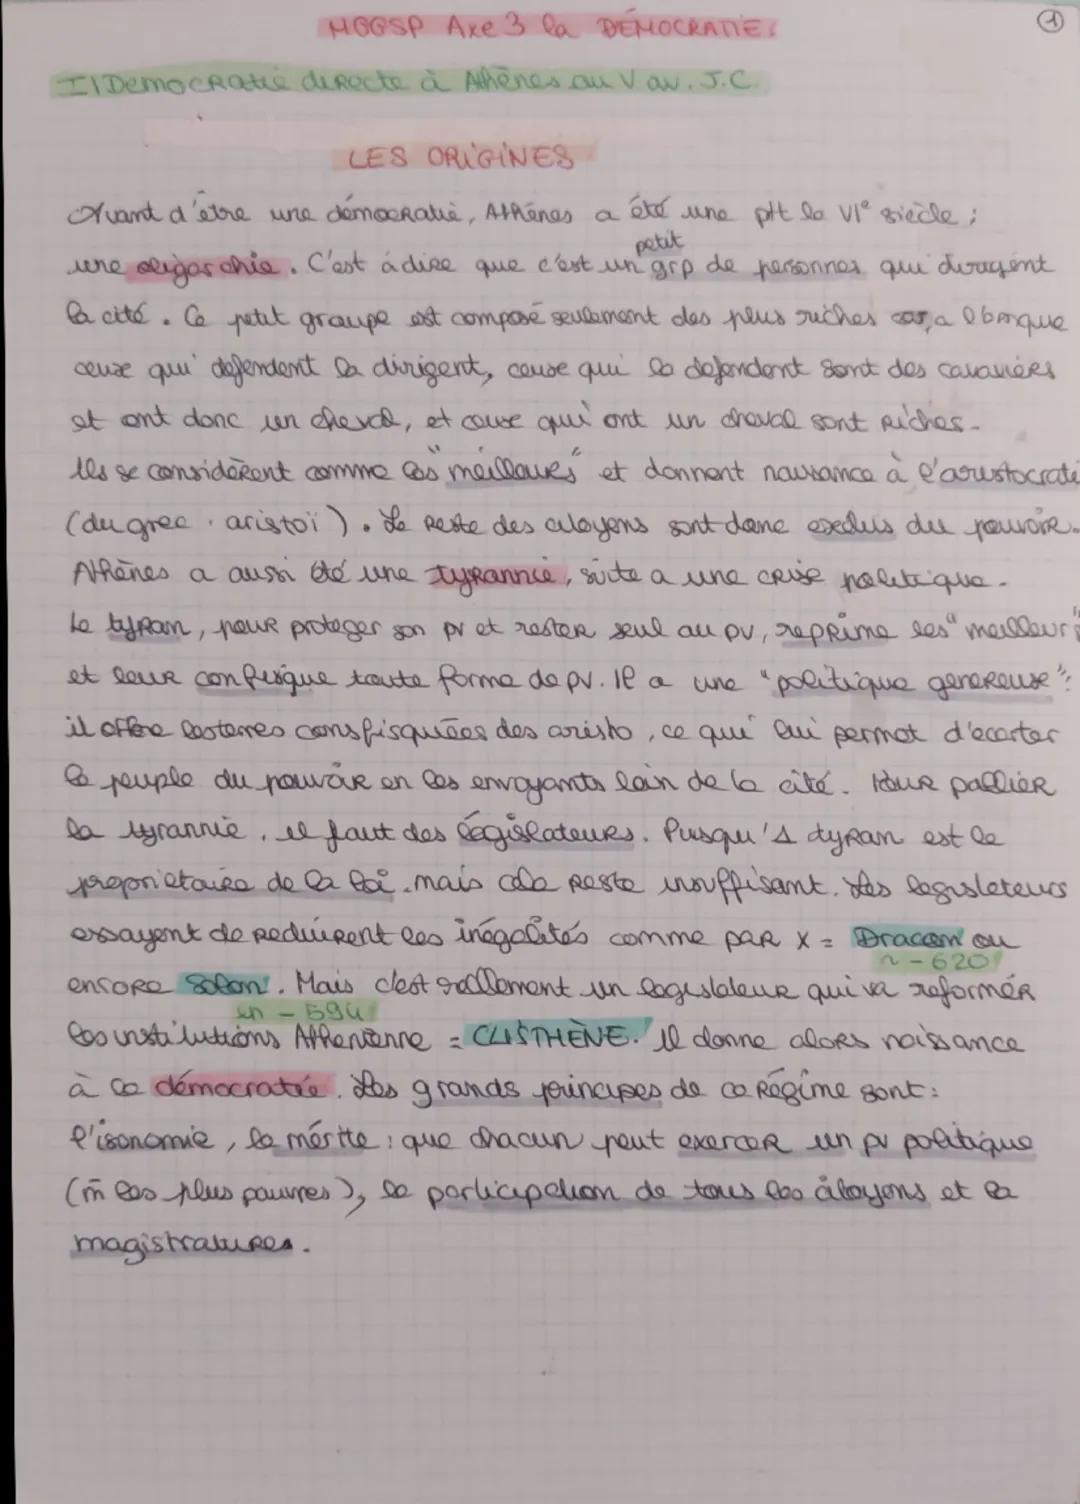 HGGSP Axe 3 la DÉMOCRATIE.
1
I) Democratie directe à Athènes au V av. J.C.
LES ORIGINES
Avant d'être une démocratie, Athènes a été une pdt le VIe siècle ;
petit
une oligarchie. C'est à dire que c'est un grp de personnes qui dirigent
la cité. Ce petit groupe est composé seulement des plus riches car, a l'époque
ceux qui défendent la dirigent, ceux qui la défendent sont des cavaliers
et ont donc un cheval, et ceux qui ont un cheval sont riches.
Ils se considèrent comme les "meilleurs" et donnent naissance à l'aristocratie
(du grec : aristoï). Le reste des citoyens sont donc exclus du pouvoir.
Athènes a aussi été une tyrannie, suite a une crise politique.
Le tyran, pour proteger son pv et rester seul au pv, reprime les "meilleurs"
et leur confisque toute forme de pv. Il a une "politique genereuse" :
il offre les terres consfisquées des aristo, ce qui lui permet d'ecarter
le peuple du pouvoir en les envoyants loin de la cité. Pour pallier
la tyrannie, il faut des législateurs. Pusqu'1 tyran est le
proprietaire de la loi. mais cela reste insuffisant. Les legisleteurs
essayent de reduirent les inégalités comme par x = Dracon ou
~ - 620
encore Solon. Mais c'est reellement un legislateur qui va reformer
en - 594
les institutions Athenienne = CLISTHÈNE. Il donne alors naissance
à la démocratie. Les grands principes de ce régime sont :
l'isonomie, le mérite : que chacun peut exercer un pv politique
(m̂ les plus pauvres), la participation de tous les citoyens et la
magistratures.